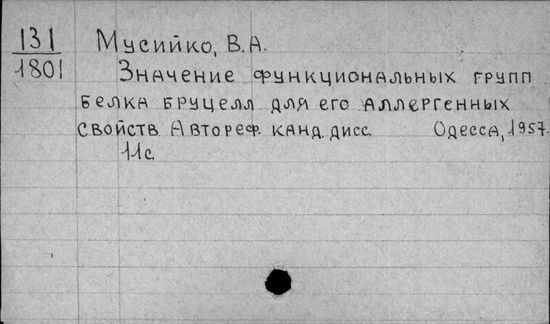 131 Мусийко, В.А.
1801 Значение функциональных групп
белка бруцелл для его аллергенных
свойств Автореф. канд. дисс. Одесса, 1957.
11с.